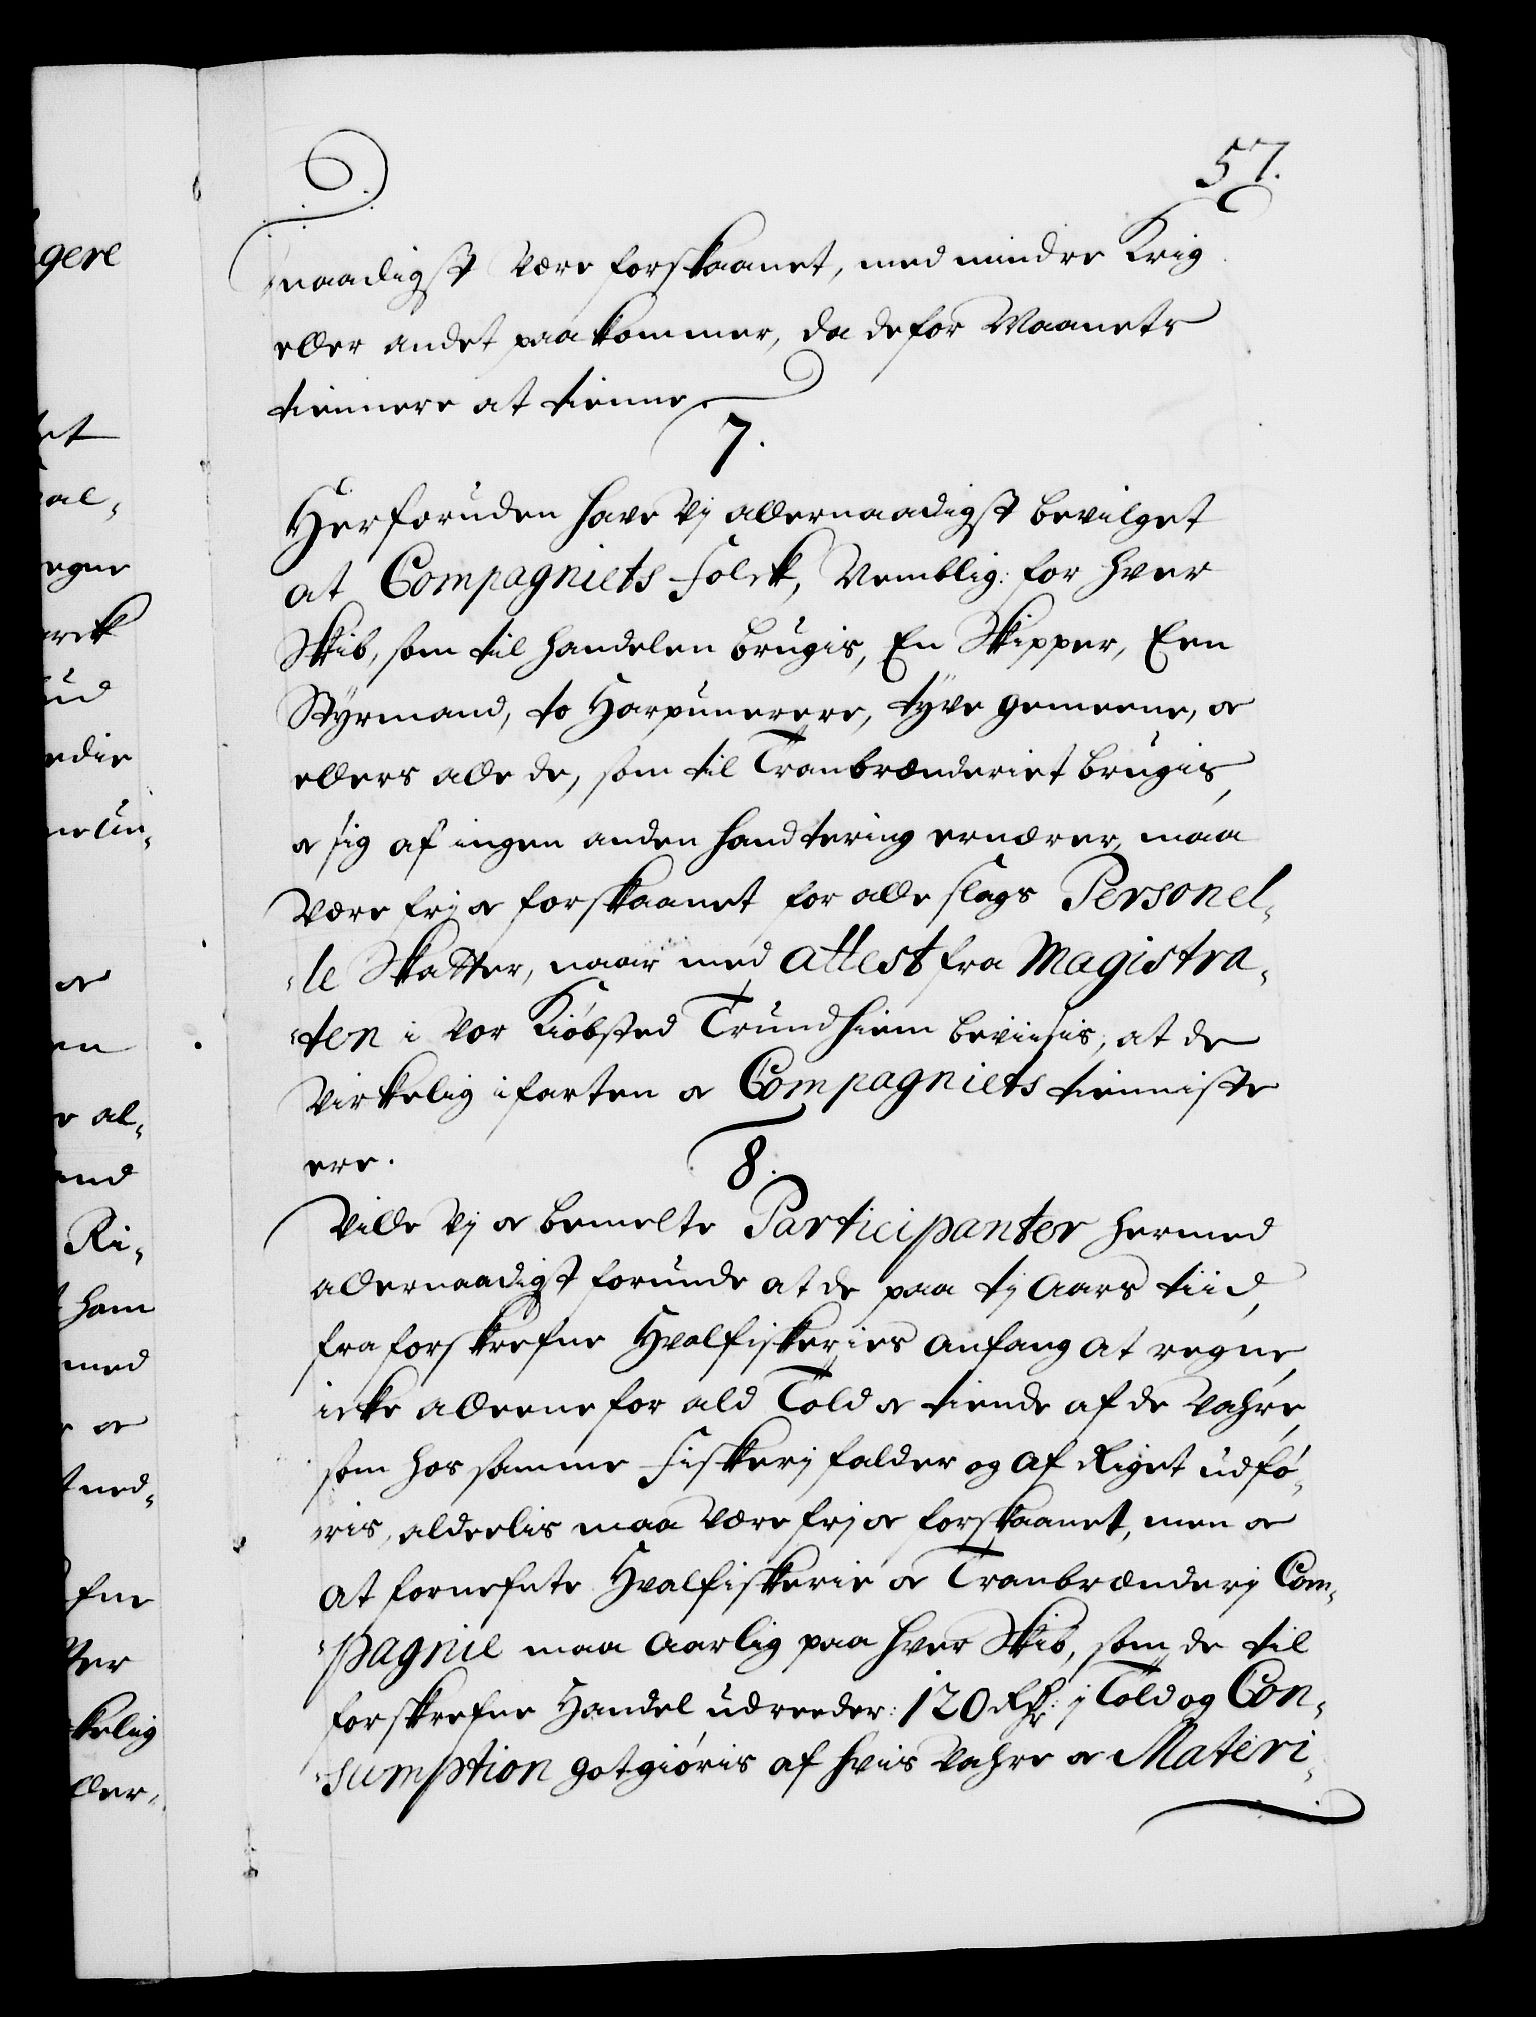 57.
naadigst være forskaanet, med mindre Krig
eller andet paakommer, da de for Maanets
tiennere at tienne
7.
Herforuden have Vj allernaadigst bevilget
at Compagniets Folck, Nemblig: for hver
Skib, som til handelen brugis, En Skipper, Een
Styrmand, to Harpunerere, tyve gemeene, oc
ellers alle de, som til Tranbrænderiet brugis,
oc sig af ingen anden handtering ernærer, maa
være frj oc forskaanet for alle slags Personel-
le Skatter, naar med attest fra Magistra-
ten i vor Kiøbsted Trundhiem beviisis, at de
virkelig i farten oc Compagniets tienniste
ere.
8.
Ville Vj oc bemelte Participanter hermed
allernaadigst forunde at de paa tj Aars tiid,
fra forskrefne Hvalfiskeries anfang at regne,
icke alleene for ald Told oc tiende af de vahre,
som hos samme Fiskerj falder og af Riget udfø-
ris, aldeelis maa være frj oc forskaanet, men oc
at fornefnte Hvalfiskerie oc Tranbrænderj Com-
pagnie maa Aarlig paa hver Skib, som de til
forskrefne Handel udreeder: 120 Rdr: j Told og Con-
sumption gotgiøris af hvis vahre oc Materi-
gere
et
al-
egne
arck
ud
edie
ne un-
oc
en
e al-
and
Ri-
t ham
med
r oc
t ned-
fne
ter
kelig
ller-